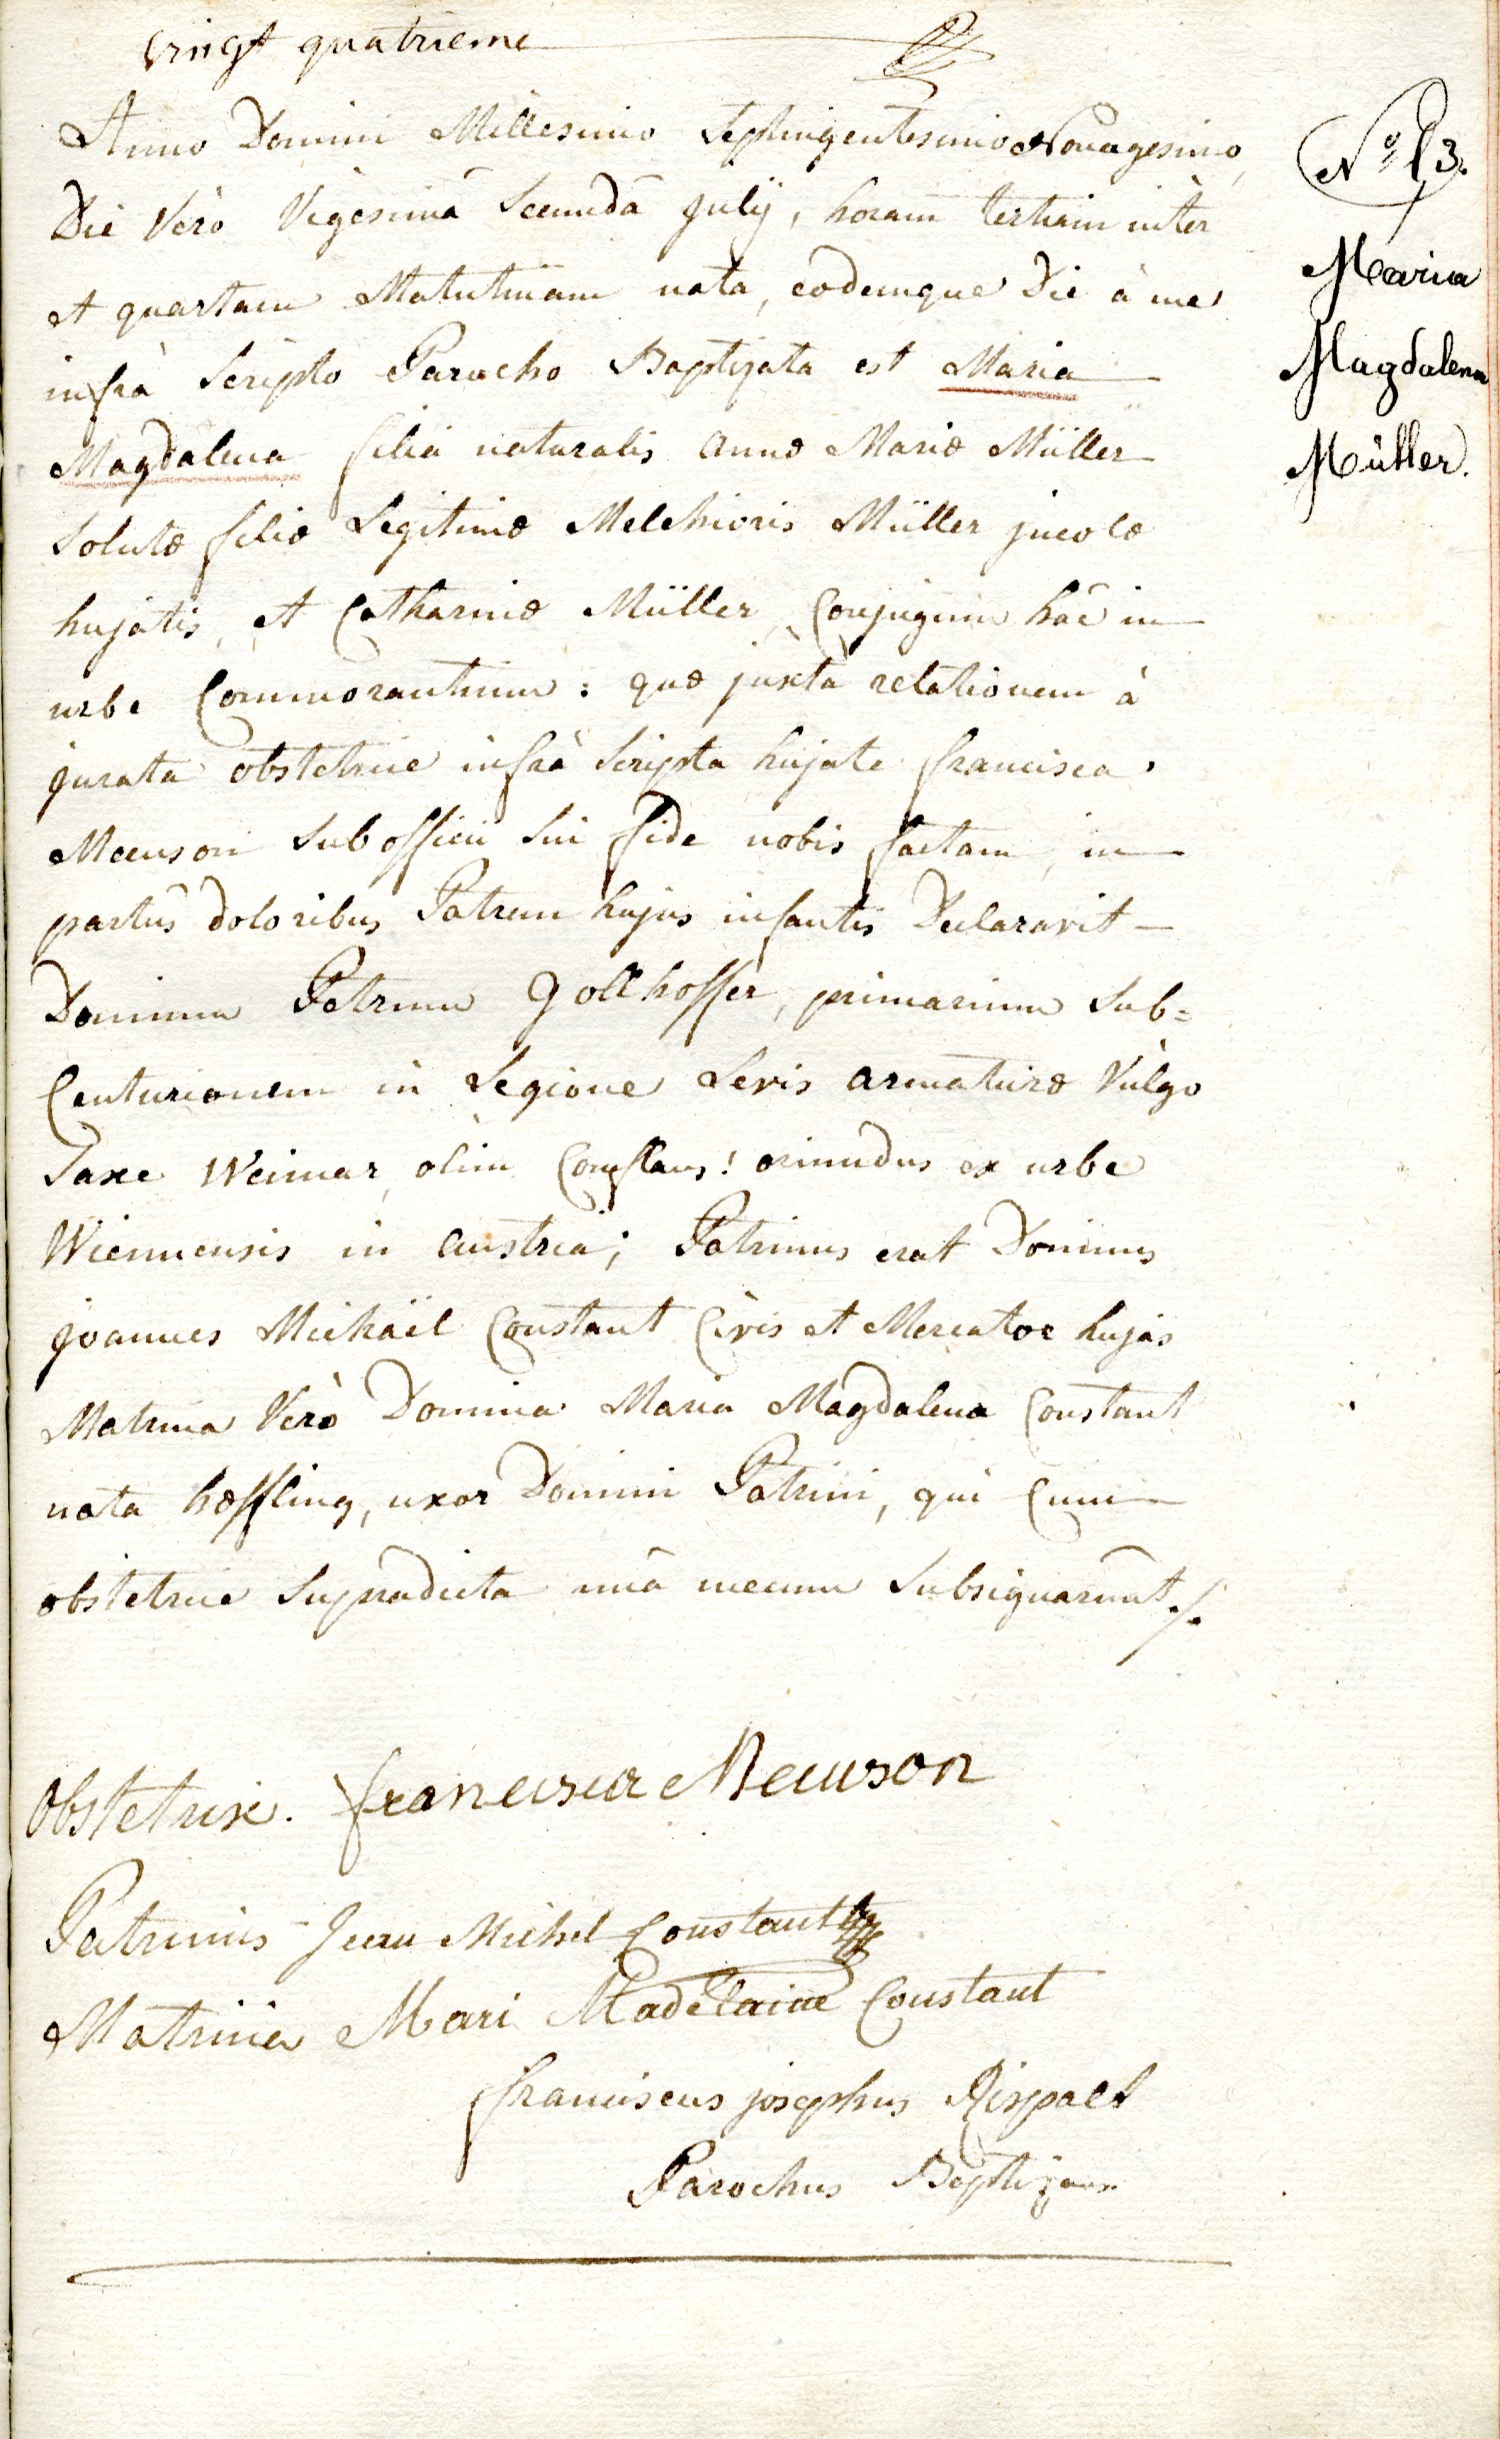 vingt quatrieme
Anno Domini Millesimo Septingentesimo Nonagesimo,
Die Verò Vigesimâ Secundâ julÿ, horam tertiam inter
et quartam Matutinam nata, eodemque Die à me
infrà Scripto Parocho Baptizata est Maria
Magdalena filia naturalis annæ Mariæ Müller
Solutæ filiæ Legitimæ Melchioris Müller jncolæ
hujatis, et Catharinæ Müller, Conjugum hâc in
urbe Commorantium: quæ juxtà relationem à
jurata obstetrice infrà Scripta hujate francisca
Meuson Sub officii Sui fide nobis factam, in
partûs doloribus Patrem hujus infantis Declaravit
Dominum Petrum Gollhoffer, primarium Sub=
Centurionem in Legione Levis armaturæ Vulgo
Saxe Weimar, olim Conflans! oriundus ex urbe
Wiennensis in austria; Patrinus erat Dominus
joannes Michaël Constant Civis et Mercator hujas
Matrina Verò Domina Maria Magdalena Constant
nata hæffling, uxor Domini Patrini, qui Cum
obstetrice Supradicta unà mecum Subsignarunt ./.
Obstetrix. francisca Meuson
Patrinus Jean Michel Constant
Matrina Mari Madelaine Constant
franciscus josephus Rispalt
Parochus Baptizans
Nº 13.
Maria
Magdalena
Müller.